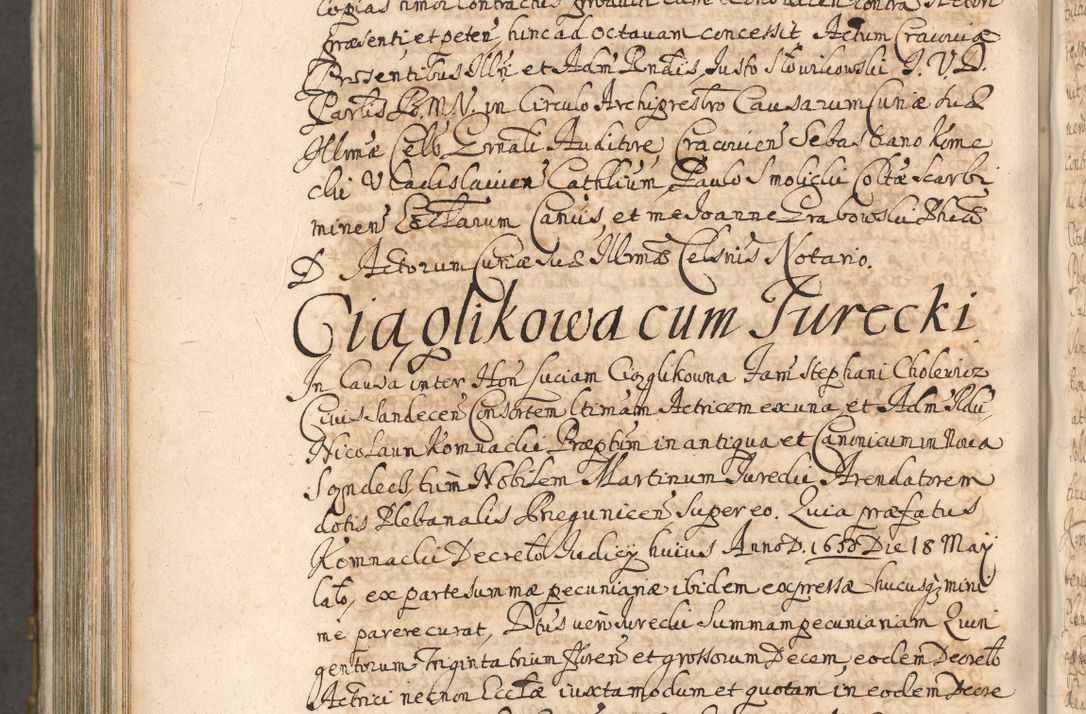 præsenti, et peten̄ hinc ad octavam concessit Actum Cracoviæ
Præsentibus Illri et Adm̄ Rndis, Justo Słowikowski J. V. D.
Partis B. M. V. in Circulo Archipresbro Causarum Curiæ suæ
Illrmæ Cels Grnali Auditore, Cracovien̄ Sebastiano Kome
cki Vladislavien̄ Cathlium, Paulo Smolicki Coltæ Scarbi
mirien̄ Ecclarum Canĉis, et me Joanne Grabowski Phiæ
D Actorum Curiæ Suæ Illrmæ Celsnis Notario.
Ciąglikowa cum Jurecki
In Causa inter Hon̄ Luciam Ciąglikowna Fam̄ Stephani Cholewicz
Civis Sandecen̄ Consortem ltimam Actricem ex una, et Adm̄ Rdu
Nicolaum Komnacki Præptum in antiqua et Canonicum in Nova
Sąndecs, tum Nobilem Martinum Jurecki Arendatorem
dotis Plebanalis Bnegunicen̄ super eo. Quia præfatus
Komnacki Decreto Judicij huius Anno D. 1658 Die 18 Maij
lato, ex parte summæ pecuniariæ ibidem expressæ hucusq, mini
me parere curat, Dtus vero Jurecki Summam pecuniariam Quin
gentorum Triginta trium floren̄ et grossorum Decem, eodem Decreto
Actrici necnon Ecclæ iuxta modum et quotam in eodem Decre